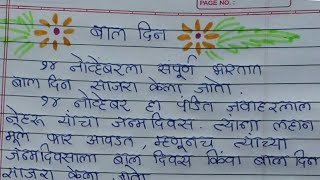 PAGE NO.:
बाल दिन
१४ नोव्हेंबरला संपूर्ण भारतात
बाल दिन साजरा केला जातो.
१४ नोव्हेंबर हा पंडीत जवाहरलाल
नेहरू यांचा जन्मदिवस. त्यांना लहान
मुले फार आवडत, म्हणूनच त्यांच्या
जन्मदिवसाला बाल दिवस किंवा बाल दिन
साजरा केला जातो